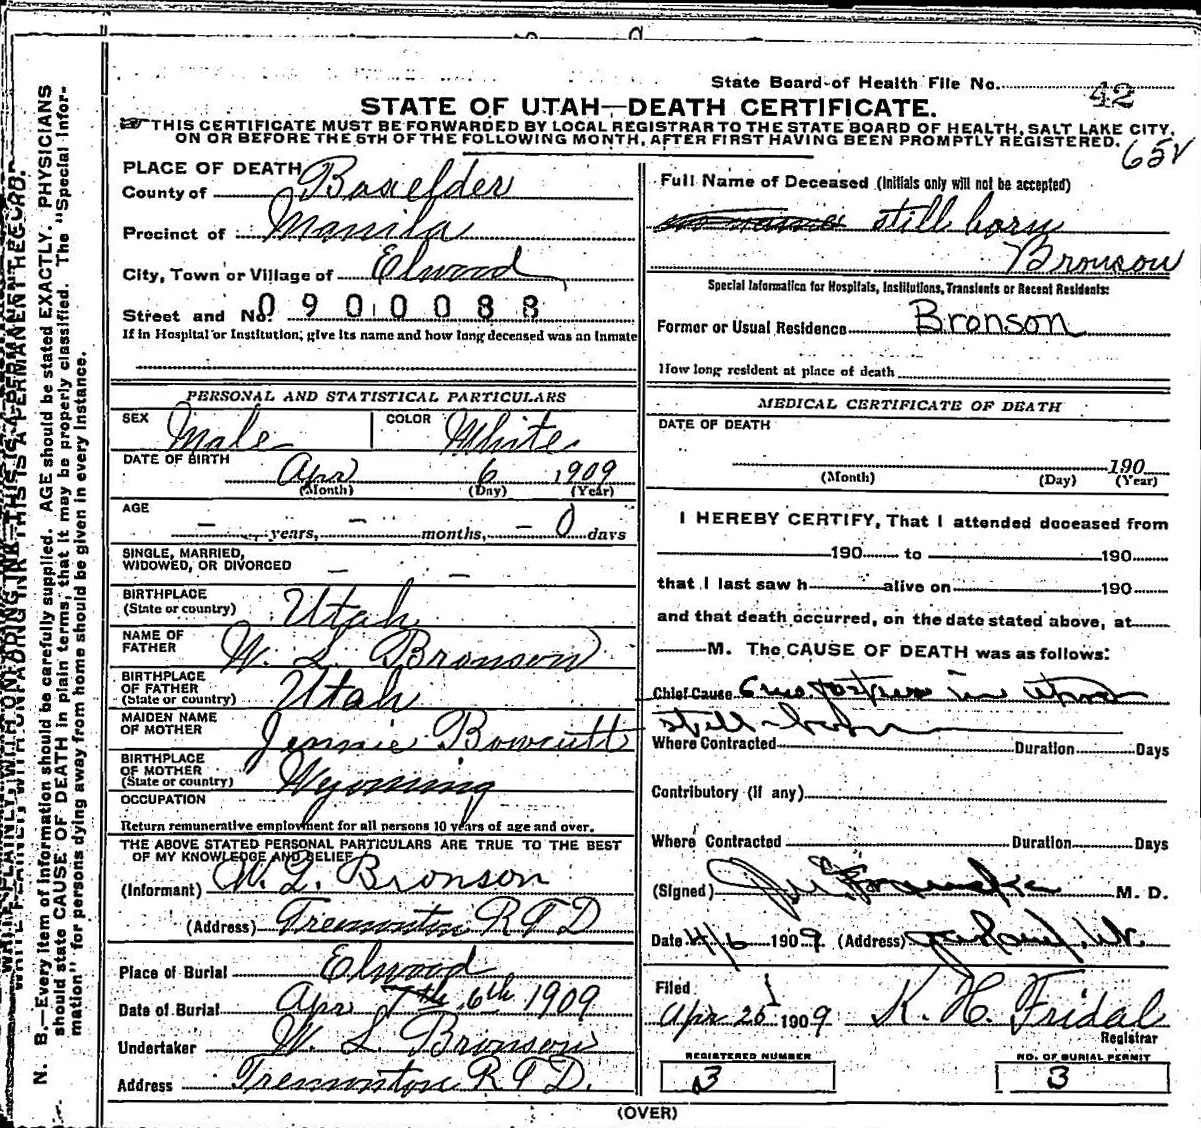 State Board of Health File No. 42
STATE OF UTAH—DEATH CERTIFICATE.
THIS CERTIFICATE MUST BE FORWARDED BY LOCAL REGISTRAR TO THE STATE BOARD OF HEALTH, SALT LAKE CITY,
ON OR BEFORE THE 5TH OF THE FOLLOWING MONTH, AFTER FIRST HAVING BEEN PROMPTLY REGISTERED.
65V
PLACE OF DEATH
County of Boxelder
Precinct of Manila
City, Town or Village of Elwood
Street and No. 0900088
If in Hospital or Institution, give its name and how long deceased was an inmate
PERSONAL AND STATISTICAL PARTICULARS
SEX Male COLOR White
DATE OF BIRTH
Apr 6 1909
(Month) (Day) (Year)
AGE
— years, — months, — 0 days
SINGLE, MARRIED,
WIDOWED, OR DIVORCED — —
BIRTHPLACE
(State or country) Utah
NAME OF
FATHER W. L. Bronson
BIRTHPLACE
OF FATHER
(State or country) Utah
MAIDEN NAME
OF MOTHER Jennie Bowcutt
BIRTHPLACE
OF MOTHER
(State or country) Wyoming
OCCUPATION
Return remunerative employment for all persons 10 years of age and over.
THE ABOVE STATED PERSONAL PARTICULARS ARE TRUE TO THE BEST
OF MY KNOWLEDGE AND BELIEF
(Informant) W. L. Bronson
(Address) Tremonton R F D
Place of Burial Elwood
Date of Burial Apr 7th 6th 1909
Undertaker W. L. Bronson
Address Tremonton R F D.
Full Name of Deceased (Initials only will not be accepted)
still born
Bronson
Special Information for Hospitals, Institutions, Transients or Recent Residents:
Former or Usual Residence Bronson
How long resident at place of death
MEDICAL CERTIFICATE OF DEATH
DATE OF DEATH
190
(Month) (Day) (Year)
I HEREBY CERTIFY, That I attended deceased from
190 to 190
that I last saw h alive on 190
and that death occurred, on the date stated above, at
M. The CAUSE OF DEATH was as follows:
Chief Cause 6 mo in
still
Where Contracted Duration Days
Contributory (if any)
Where Contracted Duration Days
(Signed) M. D.
Date 4/6 1909 (Address)
Filed
Apr 25 1909 K. H. Fridal
Registrar
REGISTERED NUMBER
3
NO. OF BURIAL PERMIT
3
(OVER)
WRITE PLAINLY, WITH UNFADING INK—THIS IS A PERMANENT RECORD.
N. B.—Every item of information should be carefully supplied. AGE should be stated EXACTLY. PHYSICIANS
should state CAUSE OF DEATH in plain terms, that it may be properly classified. The "Special Infor-
mation" for persons dying away from home should be given in every instance.